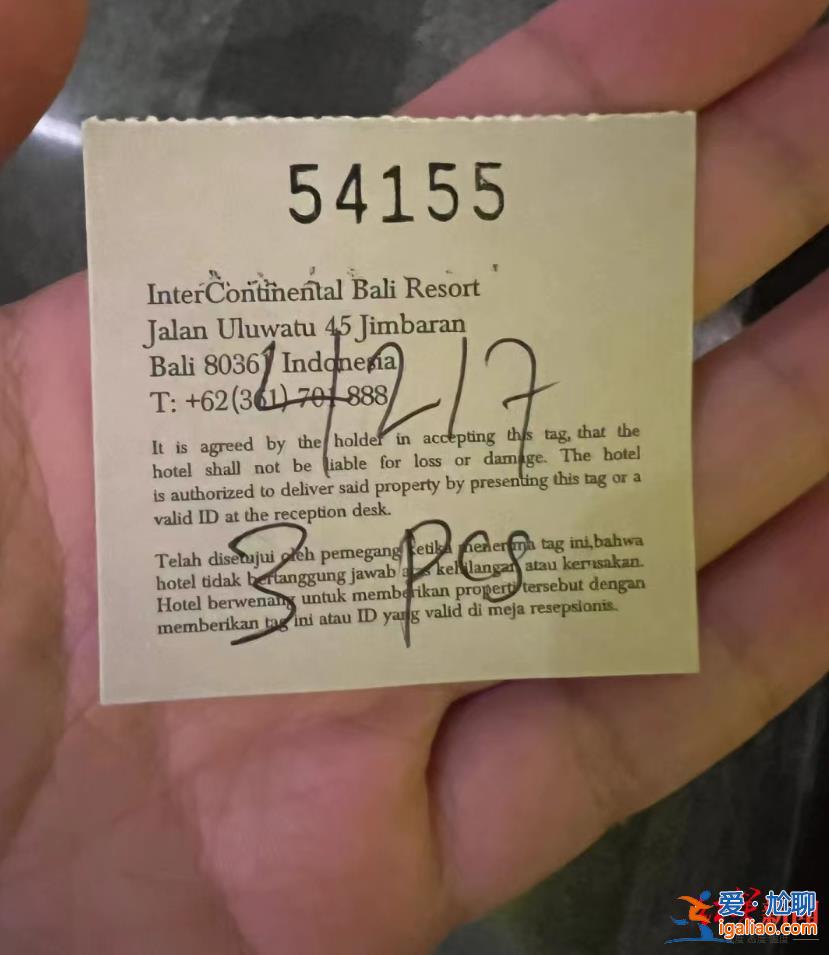 54155
InterContinental Bali Resort
Jalan Uluwatu 45 Jimbaran
Bali 80361 Indonesia
T: +62(361) 701 888
4217
It is agreed by the holder in accepting this tag, that the
hotel shall not be liable for loss or damage. The hotel
is authorized to deliver said property by presenting this tag or a
valid ID at the reception desk.
Telah disetujui oleh pemegang ketika menerima tag ini,bahwa
hotel tidak bertanggung jawab atas kehilangan atau kerusakan.
Hotel berwenang untuk memberikan properti tersebut dengan
memberikan tag ini atau ID yang valid di meja resepsionis.
3 pcs
爱·尬聊
igaliao.com